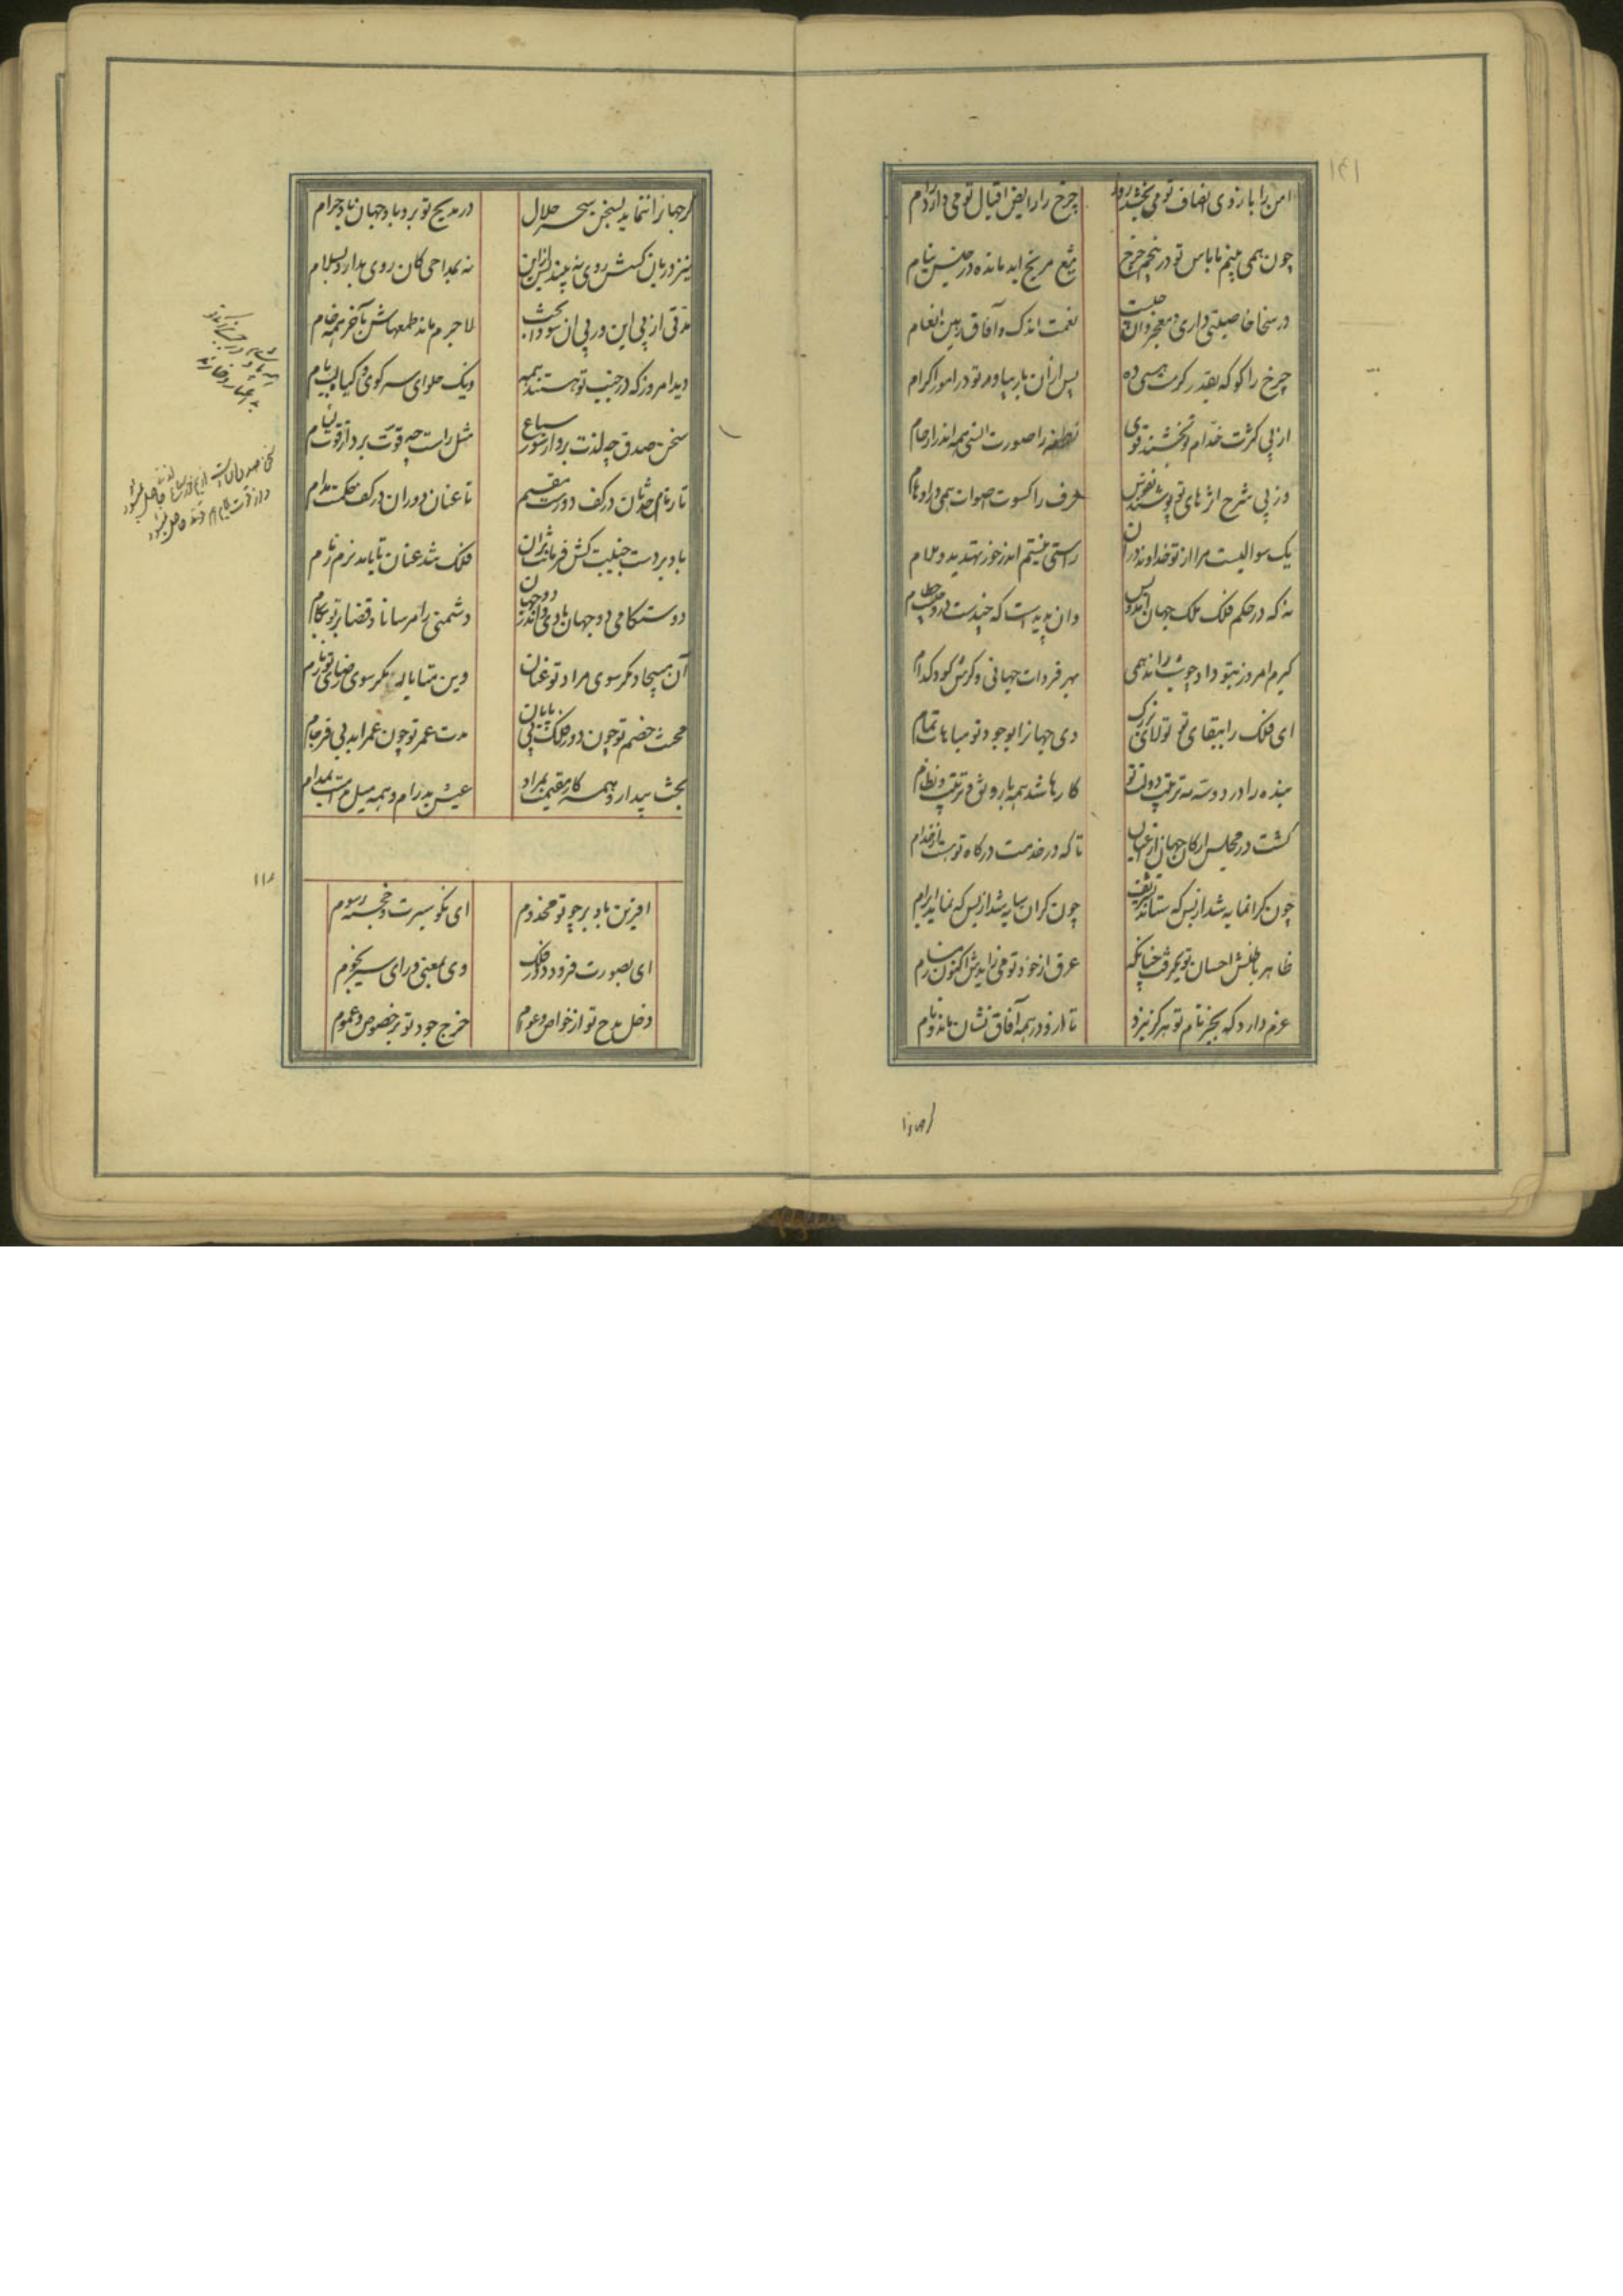 امن را بازوی انصاف تو می بخشد روز
چرخ را رایض اقبال تو می دارد رام
چون همی بینم با باس تو در پنجم چرخ
تیغ مریخ ابد مانده در حبس نیام
در سخا خاصیتی داری و معجز وان چیست
نعمت اندک و آفاق رهین انعام
چرخ را کو که بقدر کرمت هستی ده
پس از ان بار بیاور تو در امور اکرام
از پی کثرت خدام تو بخشند قوی
نطفه را صورت انسی همه اندر ارحام
وز پی شرح اثر های تو پوشند نفوس
حرف را کسوت اصوات همی در اوهام
یک سوالیست مرا از تو خداوند در ان
راستی نیستم اندر خور تهدید و ملام
نه که در حکم فلک ملک جهان آمد و بس
وان پدیدست که چندست درو حطام
کیرم امروز بتو داد چو شب راند همی
بهر فردات جهانی دکرش کو و کدام
ای فلک را ببقای تو تولای بزرک
وی جهانرا بوجود تو مباهات تمام
بنده را در دو سه مه تربیت دولت تو
کارها شد همه با رونق و ترتیب و نظام
کشت در مجلس ارکان جهان از اعیان
تا که در خدمت درکاه تو شد از خدام
چون کرانمایه شد از بس که ستاند تشریف
چون کران سایه شد از بس که نماید ابرام
ظاهر و باطنش احسان تو بکرفت چنانکه
عرق از خود تو می زایدش اکنون ز مسام
عزم دارد که بجز نام تو هرکز نبرد
تا ازو در همه آفاق نشان ماند و نام
کر جهانرا ننماید بسخن سحر حلال
در مدیح تو برو باد جهان باد حرام
نیز در بان کسش روی نه بیند پس ازین
نه بمداحی کان روی ندارد بسلام
مدتی از پی این در پی ان سودا پخت
لاجرم ماند طمعهاش بآخر همه خام
دید امروز که در جنب تو هستند همه
دیک حلوای سر کوی و کیا بر لب بام
سخن صدق چه لذت برد از سور سباع
مثل راست چه قوت برد از قوت لئام
تا زمام حدثان در کف دورست مقیم
تا عنان دوران در کف حکمت مدام
باد بر دست جنیبت کش فرمانت روان
فلک تند عنان تا بابد نرم زمام
دوستکامی دو جهان بادی و اندر دو جهان
دشمنی را مرساناد قضا بر تو بکام
آن مپیچاد مکر سوی مراد تو عنان
وین متاباد مکر سوی رضای تو زمام
محنت خصم تو چون دور فلک بی پایان
مدت عمر تو چون عمر ابد بی فرجام
بخت بیدار و همه کار مقیمت بمراد
عیش بدرام و همه میل مدامت بمدام
افرین باد بر چو تو مخدوم
ای نکو سیرت و خجسته رسوم
ای بصورت فرود دور فلک
وی بمعنی ورای سیر نجوم
دخل مدح تو از خواص و عوام
خرج جود تو بر خصوص و عموم